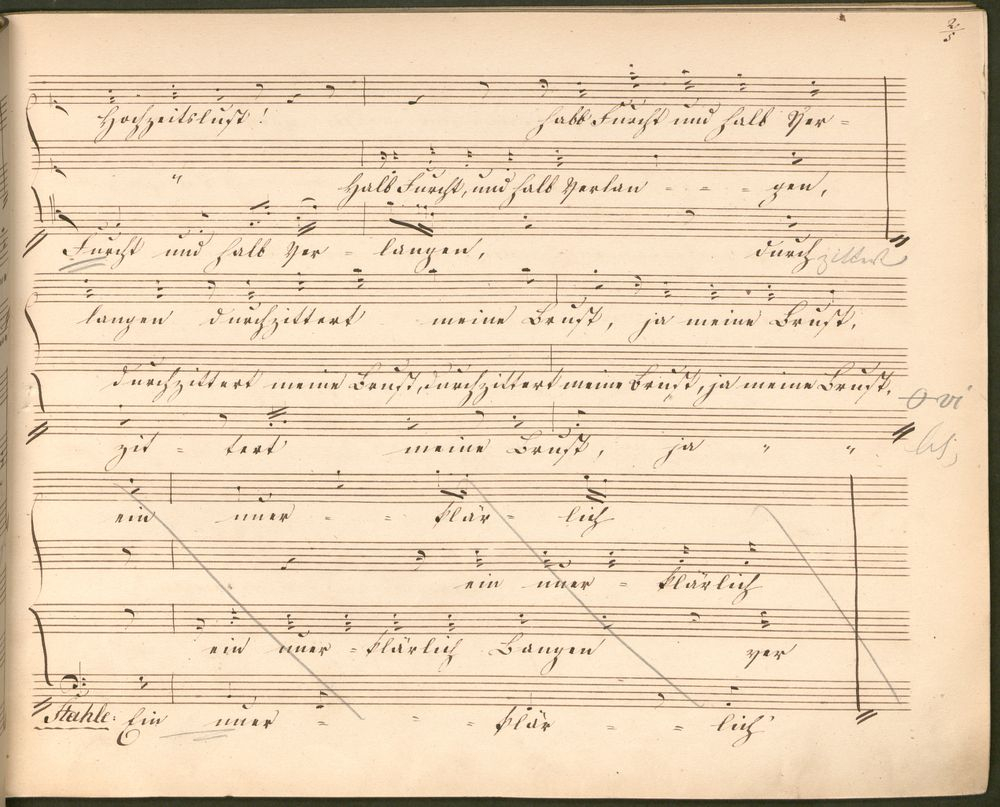 2/5
Hochzeitslust! halb Furcht und halb Ver-
" Halb Furcht, und halb Verlan - - - gen,
Furcht und halb Ver - langen, durchzittert
langen durchzittert meine Brust, ja meine Brust,
durchzittert meine Brust, durchzittert meine Brust, ja meine Brust,
zit - tert meine Brust, ja " "
ein uner - - klär - lich
ein uner - klärlich
ein uner - klärlich Bangen ver
Stahle: Ein uner - - - klär - - lich